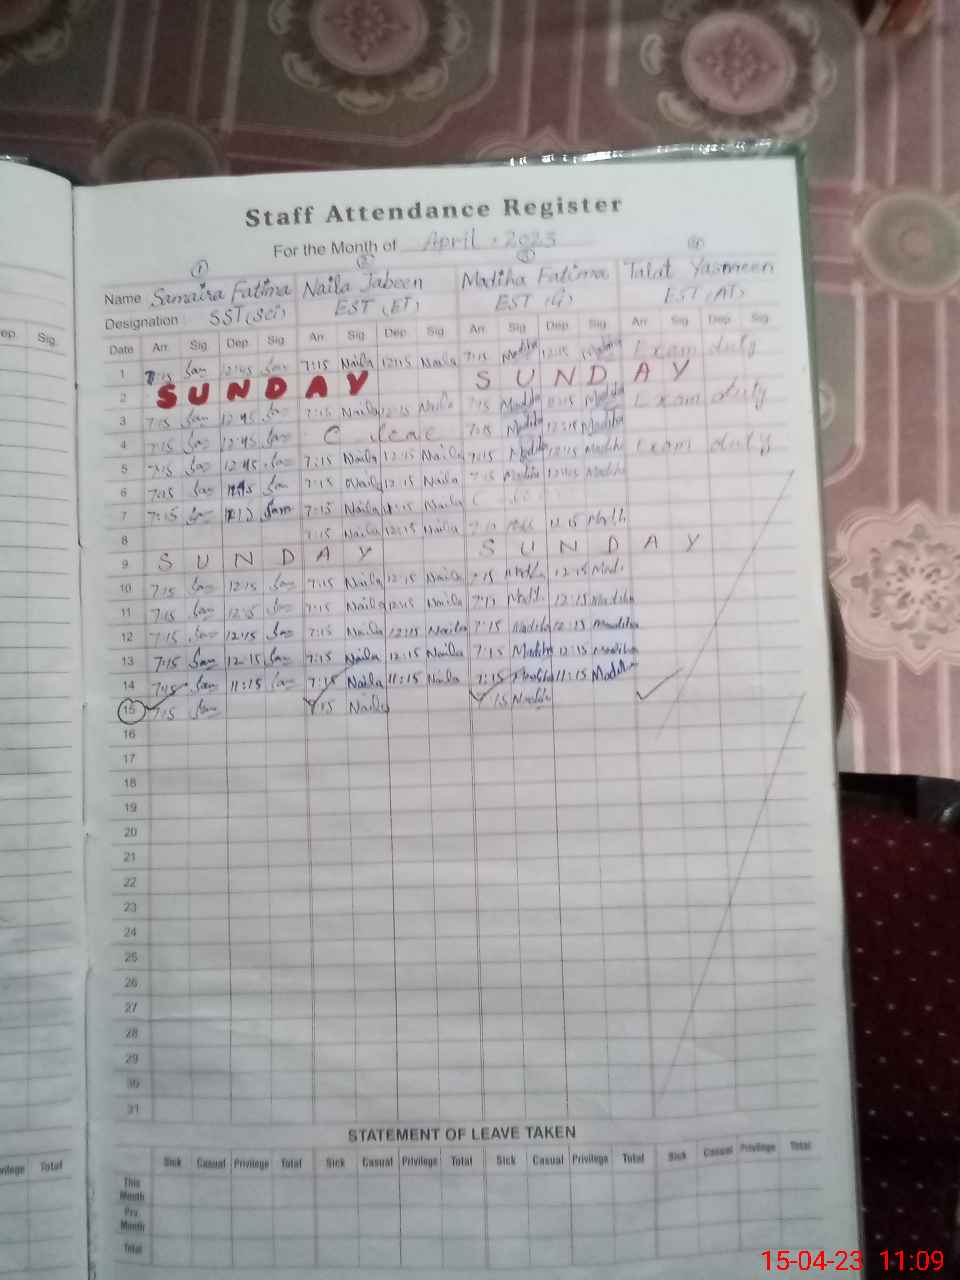 Staff Attendance Register
For the Month of April . 2023
① ② ③ ④
Name Samaira Fatima Naila Jabeen Madiha Fatima Talat Yasmeen
Designation SST (Sci) EST (ET) EST (G) EST (AT)
Date Arr. Sig Dep. Sig Arr Sig Dep. Sig. Arr. Sig Dep. Sig Arr. Sig Dep. Sig
ep. Sig.
1 7:15 Sam 12:45 Sam 7:15 Naila 12:15 Naila 7:15 Madiha 12:15 Madiha Exam duty
2 SUNDAY SUNDAY
3 7:15 Sam 12:45 Sam 7:15 Naila 12:15 Naila 7:15 Madiha 12:15 Madiha Exam duty
4 7:15 Sam 12:45 Sam C leave 7:15 Madiha 12:15 Madiha
5 7:15 Sam 12:45 Sam 7:15 Naila 12:15 Naila 7:15 Madiha 12:15 Madiha Exam duty
6 7:15 Sam Sam 7:15 Naila 12:15 Naila 7:15 Madiha Madiha
7 7:15 Sam Sam 7:15 Naila Naila C
8 7:15 Naila 12:15 Naila 12:15
9 SUNDAY SUNDAY
10 7:15 Sam 12:15 Sam 7:15 Naila 12:15 Naila 7:15 12:15
11 7:15 Sam Sam 7:15 Naila 12:15 Naila 12:15 Madiha
12 7:15 Sam 12:15 Sam 7:15 Naila 12:15 Naila 7:15 Madiha 12:15 Madiha
13 7:15 Sam 12:15 Sam 7:15 Naila 12:15 Naila 7:15 Madiha 12:15 Madiha
14 7:15 Sam 11:15 Sam 7:15 Naila 11:15 Naila 7:15 Madiha 11:15 Madiha
15 7:15 Sam 7:15 Naila 15 Madiha
16
17
18
19
20
21
22
23
24
25
26
27
28
29
30
31
STATEMENT OF LEAVE TAKEN
Sick Casual Privilege Total Sick Casual Privilege Total Sick Casual Privilege Total Sick Casual Privilege Total
vilege Total
This Month
Prv. Month
Total
15-04-23 11:09